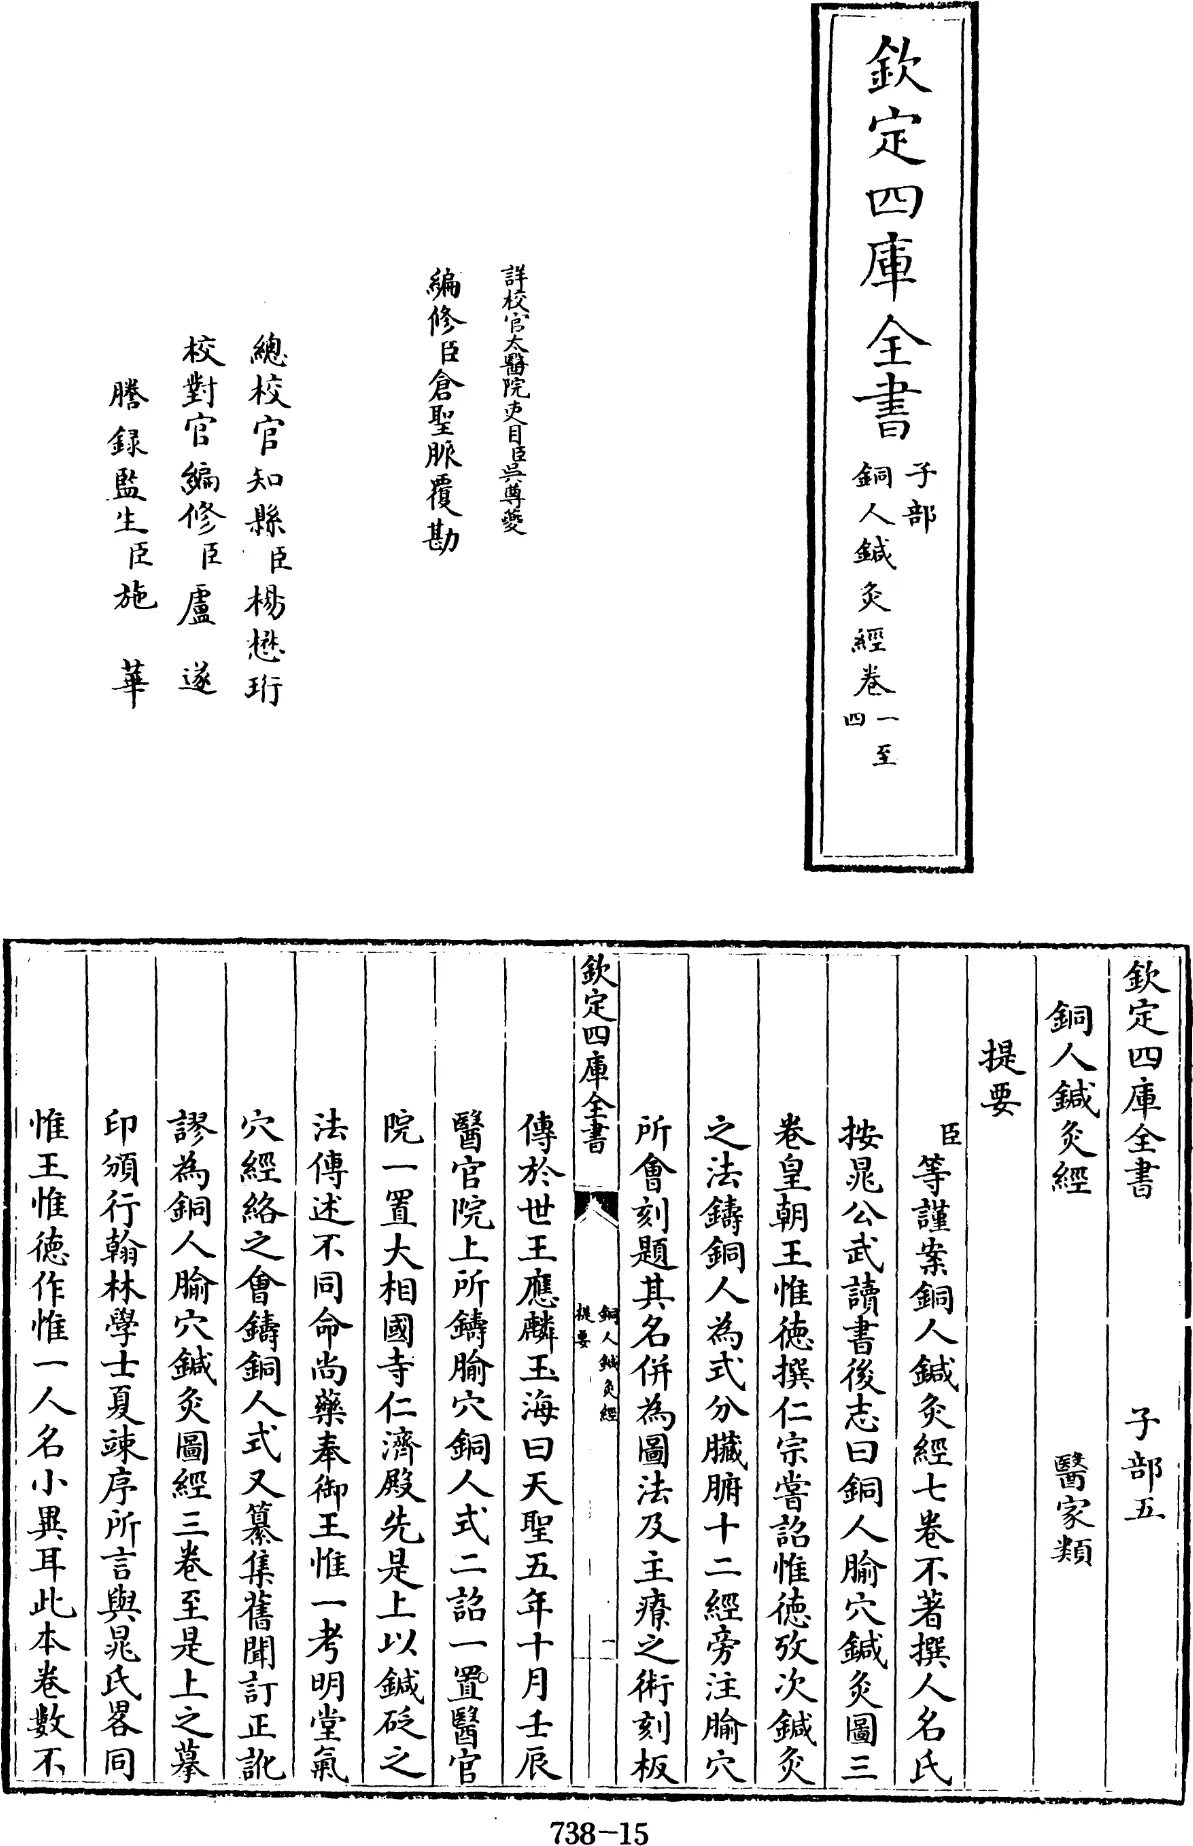 欽定四庫全書
子部
銅人鍼灸經卷一至
四
詳校官太醫院吏目臣吳尊夔
編修臣倉聖脈覆勘
總校官知縣臣楊懋珩
校對官編修臣盧遂
謄録監生臣施華
欽定四庫全書 子部五
銅人鍼灸經 醫家類
提要
臣等謹案銅人鍼灸經七卷不著撰人名氏
按晁公武讀書後志曰銅人腧穴鍼灸圖三
卷皇朝王惟徳撰仁宗嘗詔惟徳攷次鍼灸
之法鑄銅人為式分臟腑十二經旁注腧穴
所㑹刻題其名併為圖法及主療之術刻板
欽定四庫全書
銅人鍼灸經
提要
一
傳於世王應麟玉海曰天聖五年十月壬辰
醫官院上所鑄腧穴銅人式二詔一置醫官
院一置大相國寺仁濟殿先是上以鍼砭之
法傳述不同命尚藥奉御王惟一考明堂氣
穴經絡之㑹鑄銅人式又纂集舊聞訂正訛
謬為銅人腧穴鍼灸圖經三卷至是上之摹
印頒行翰林學士夏竦序所言與晁氏畧同
惟王惟徳作惟一人名小異耳此本卷數不
738-15